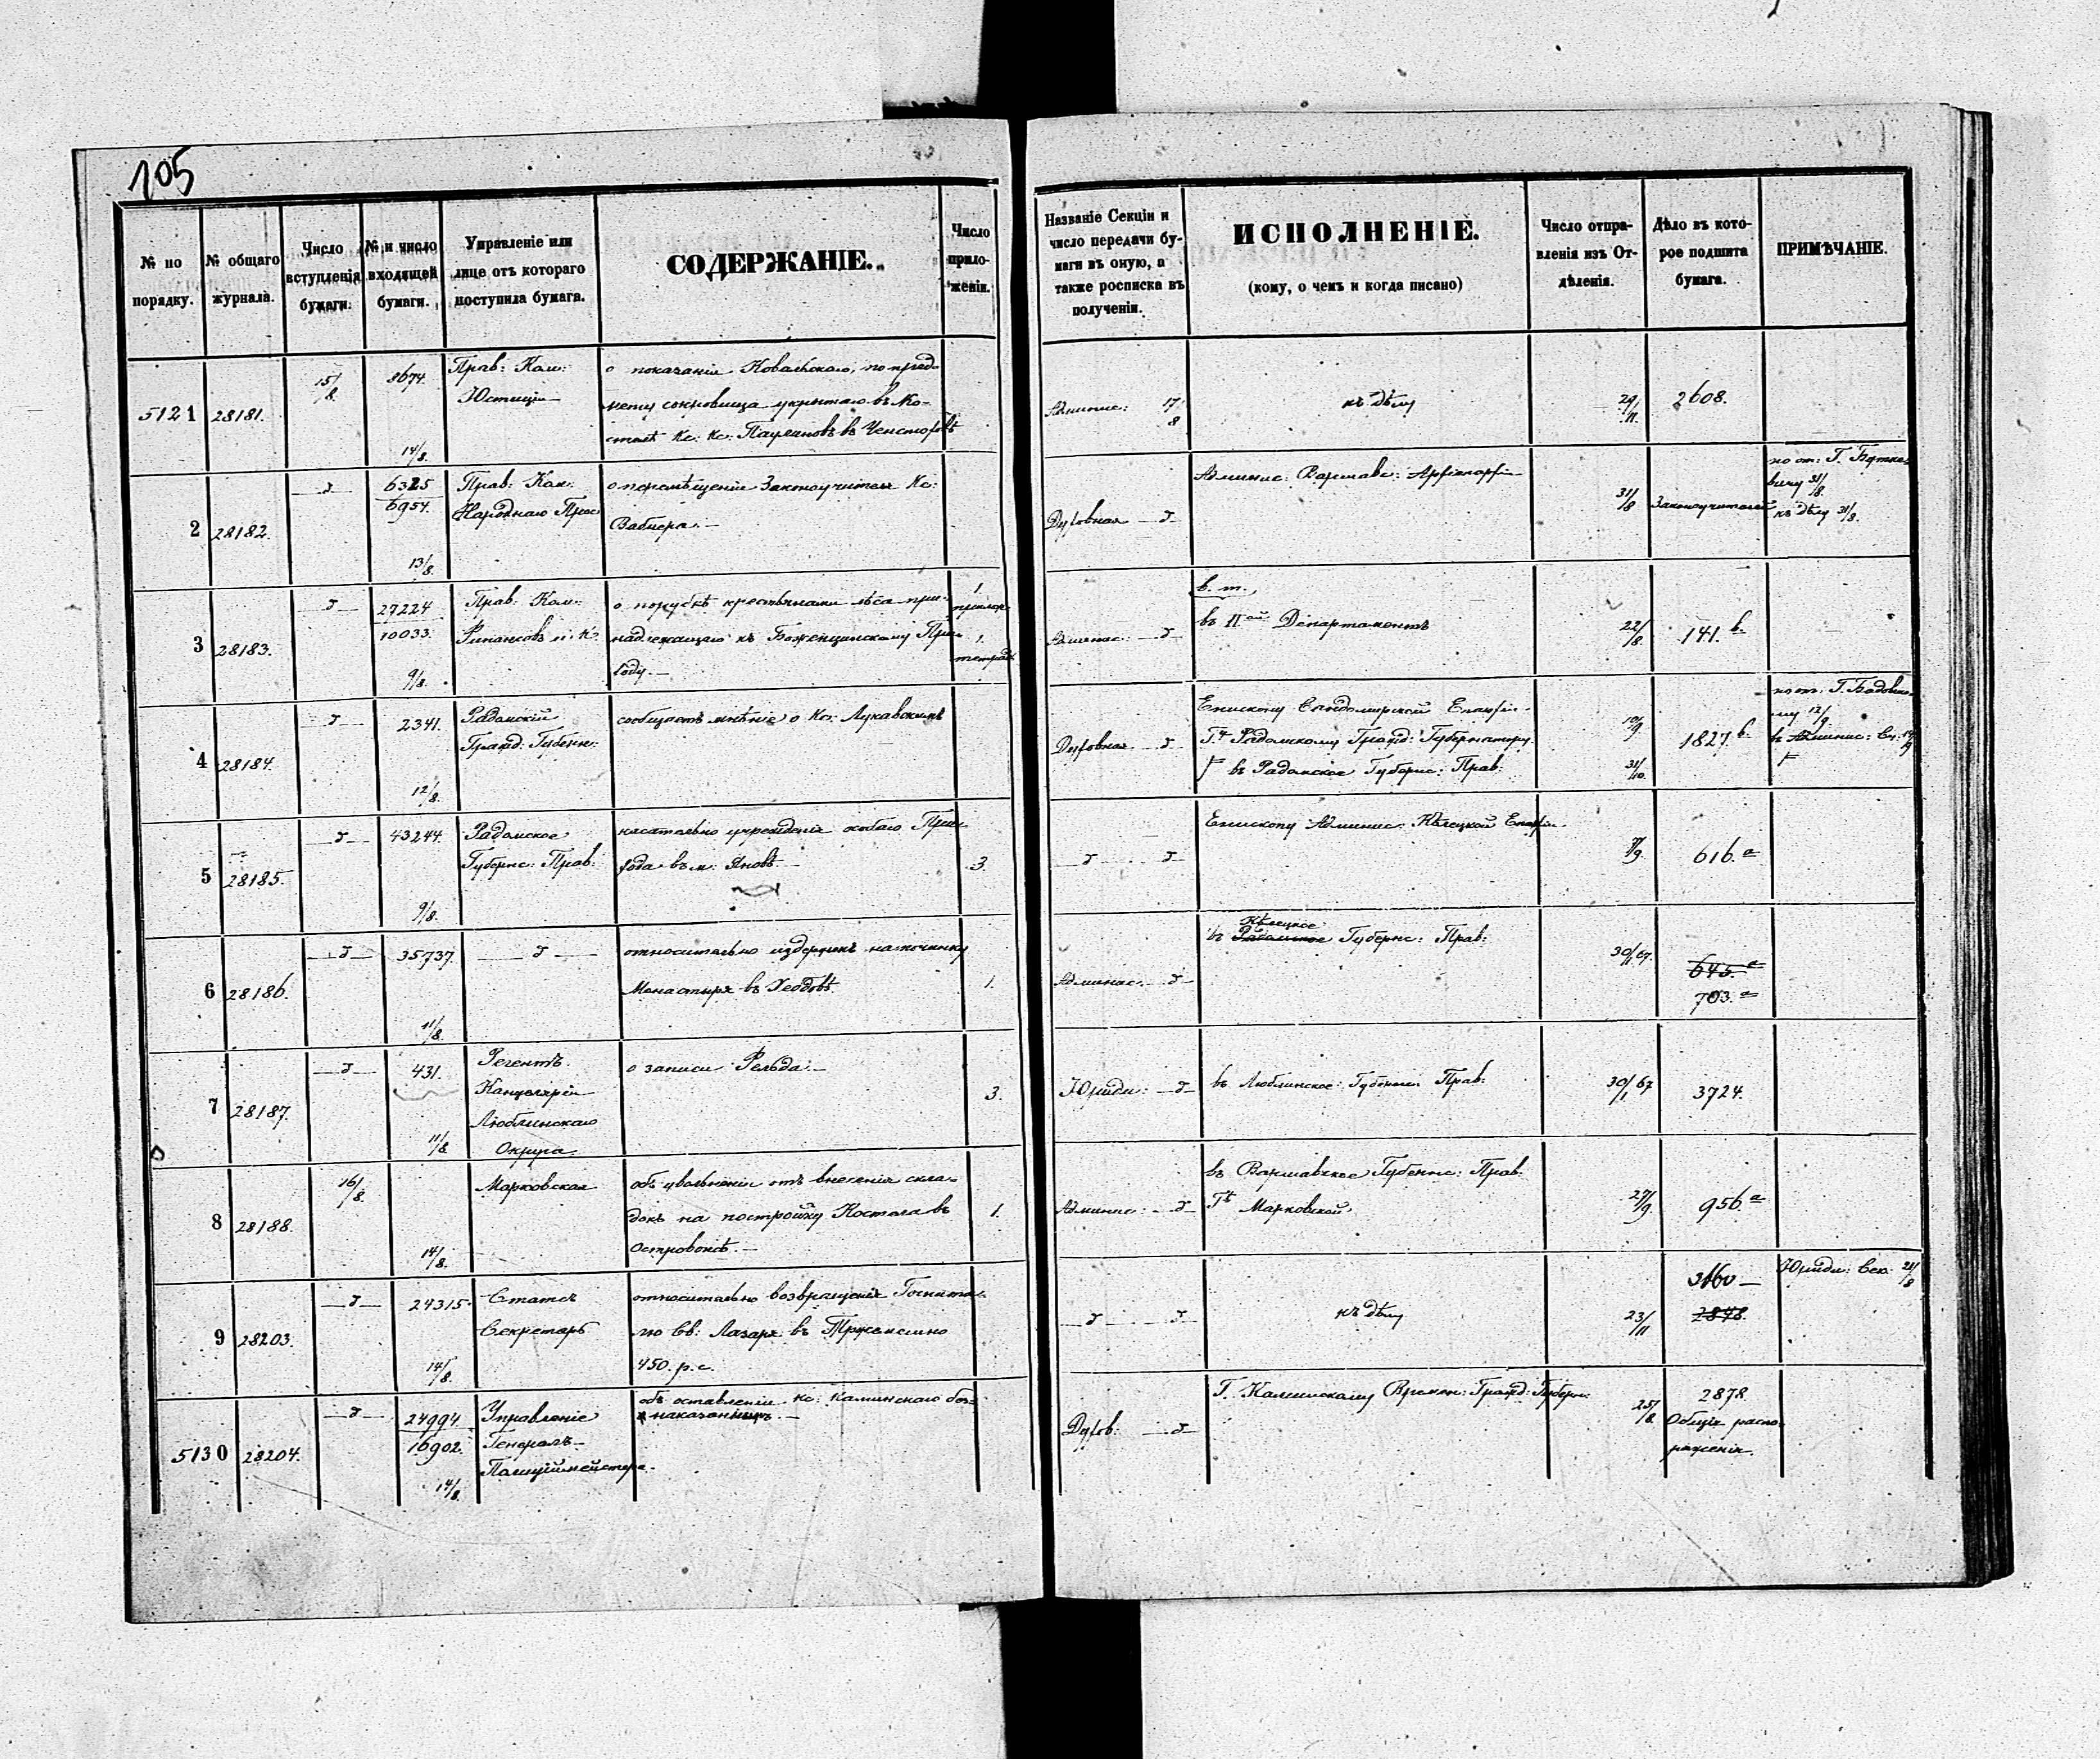 105
№ по порядку.
№ общаго журнала.
Число вступленія бумаги.
№ и число входящей бумаги.
Управленіе или лице отъ котораго поступила бумага.
СОДЕРЖАНІЕ.
Число приложеній.
Названіе Секціи и число передачи бумаги въ оную, а также росписка въ полученіи.
ИСПОЛНЕНІЕ.
(кому, о чемъ и когда писано)
Число отправленія изъ Отдѣленія.
Дѣло въ которое подшита бумага.
ПРИМѢЧАНІЕ.
5121 28181. 15/8 8674. 14/8.
Прав: Ком:
Юстиціи
о показаніи Ковальскаго, по предмету сокровища укрытаго въ Костелѣ Кс: Кс: Паулиновъ въ Ченстоховѣ
Админис: 17/8
къ дѣлу
29/11. 2608.
2 28182. 6325 6954. 13/8.
Прав: Ком:
Народнаго Прос
о перемѣщеніи Законоучителя Кс:
Вагнера.
Духовная
Админис: Варшавс: Архіепархіи
31/8 Законоучителей
къ дѣлу 31/8.
3 28183. 27224 10033. 9/8.
Прав: Ком:
Финансовъ
о порубкѣ крестьянами лѣса принадлежащаго къ Боженцинскому Приходу.
1 прилож
1. тетрадь
Админис:
в. т.
въ IIой Департаментъ
22/8. 141.b.
4 28184. 2341. 12/8.
Радомскій
Гражд: Губерн:
сообщаетъ мнѣніе о Кс: Лукавскимъ
Духовная
Епископу Сандомирской Епархіи
Радомскому Гражд: Губернатору.
въ Радомское Губернс: Прав:
10/9 31/10. 1827.b.
въ Админис:
5 28185. 43244. 9/8.
Радомское
Губернс: Прав:
касательно учрежденія особаго Прихода въ м: Яновѣ
3
Епископу Админис: Кѣлецкой Епархіи
616.a
6 28186. 35737. 11/8.
относительно издержекъ на починку
Монастыря въ Хеддовѣ
1.
Админис:
Кѣлецкое
въ Радомское Губернс: Прав:
645.a
703.a
7 28187. 431. 11/8
Регентъ
Канцеляріи
Люблинскаго
Округа.
о записи Рельда.
3.
Юриди:
въ Люблинское Губернс: Прав:
30/1 67 3724.
8 28188. 16/8. 14/8.
Марковская
объ увольненіи отъ внесенія складокъ на постройку Костела въ
1.
Админис:
въ Варшавское Губернс: Прав:
Гѣ Марковской
27/9. 956.a
9 28203. 24315. 14/8.
Статсъ
Секретарь
относительно возвращенія Госпиталю Св: Лазаря въ
450. р. с.
къ дѣлу
23/11
3160
2878.
Юриди: Сек: 21/8
5130 28204. 24994. 16902. 14/8.
Управленіе
Генералъ-
Полиціймейстера.
объ оставленіи кс: Каминскаго без
наказаннымъ.
Духов:
Г. Калишскому Времен: Гражд: Губерн:
25/8 2878
Общія распоряженія.